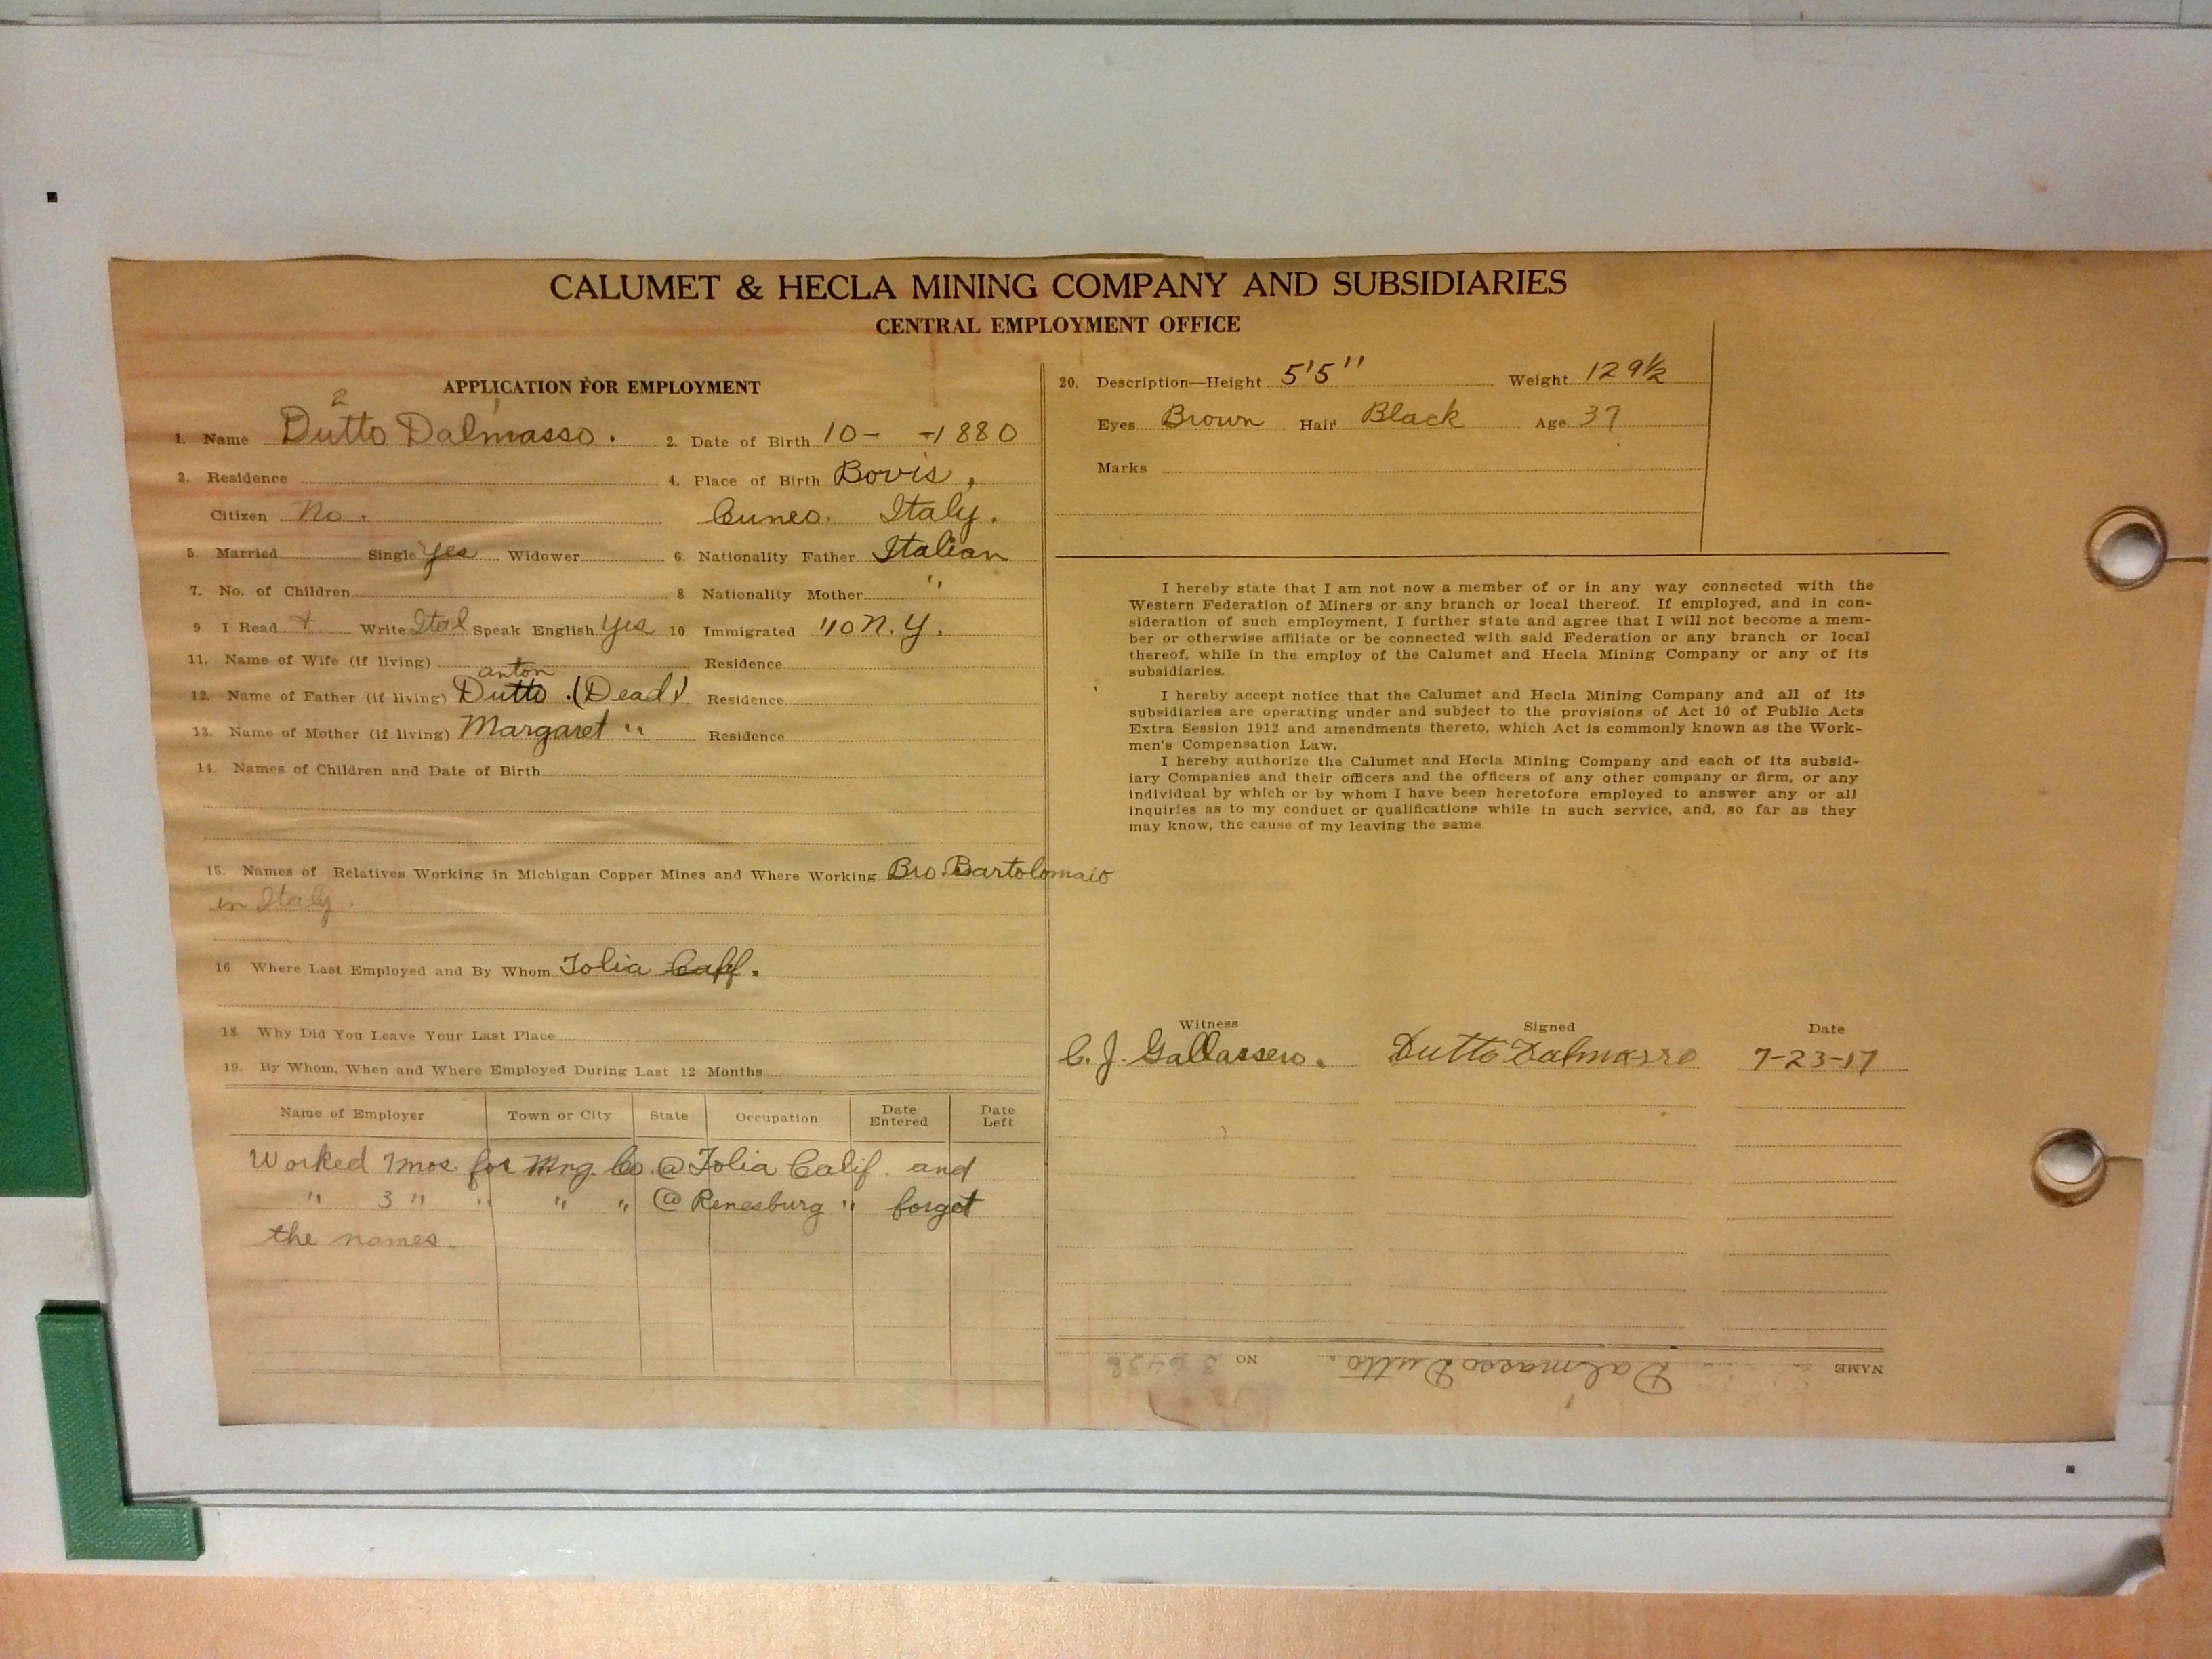 CALUMET & HECLA MINING COMPANY AND SUBSIDIARIES
CENTRAL EMPLOYMENT OFFICE
APPLICATION FOR EMPLOYMENT
2 1
1. Name Dutto Dalmasso. 2. Date of Birth 10- -1880
3. Residence 4. Place of Birth Bovis,
Citizen No. Cuneo. Italy.
5. Married Single Yes Widower 6. Nationality Father Italian
7. No. of Children 8 Nationality Mother "
9 I Read + Write Ital Speak English Yes 10 Immigrated '10 N.Y.
11. Name of Wife (if living) Residence
anton
12. Name of Father (if living) Dutto. (Dead) Residence
13. Name of Mother (if living) Margaret " Residence
14. Names of Children and Date of Birth
15. Names of Relatives Working in Michigan Copper Mines and Where Working Bro. Bartolomaio
in Italy.
16. Where Last Employed and By Whom Tolia
18. Why Did You Leave Your Last Place
19. By Whom, When and Where Employed During Last 12 Months
Name of Employer Town or City State Occupation Date Entered Date Left
Worked 7 mos. for Mng. Co @ Tolia Calif. and
" 3 " " " " @ Renesburg " forget
the names.
20. Description—Height 5'5" Weight 129½
Eyes Brown Hair Black Age 37
Marks
I hereby state that I am not now a member of or in any way connected with the
Western Federation of Miners or any branch or local thereof. If employed, and in con-
sideration of such employment, I further state and agree that I will not become a mem-
ber or otherwise affiliate or be connected with said Federation or any branch or local
thereof, while in the employ of the Calumet and Hecla Mining Company or any of its
subsidiaries.
I hereby accept notice that the Calumet and Hecla Mining Company and all of its
subsidiaries are operating under and subject to the provisions of Act 10 of Public Acts
Extra Session 1912 and amendments thereto, which Act is commonly known as the Work-
men's Compensation Law.
I hereby authorize the Calumet and Hecla Mining Company and each of its subsid-
iary Companies and their officers and the officers of any other company or firm, or any
individual by which or by whom I have been heretofore employed to answer any or all
inquiries as to my conduct or qualifications while in such service, and, so far as they
may know, the cause of my leaving the same
Witness Signed Date
C. J. Dutto Dalmasso 7-23-17
NAME Dalmasso Dutto. NO 36438